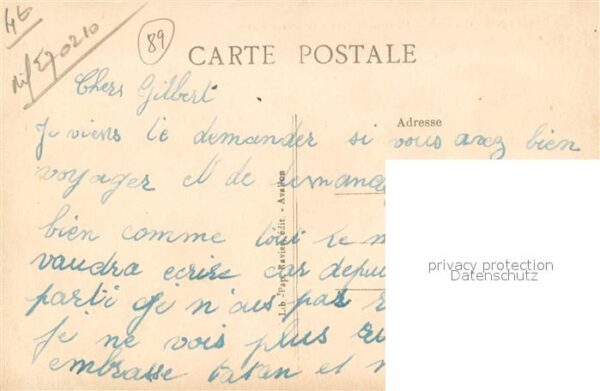 46
89
CARTE POSTALE
Chers Gilbert
Adresse
Je viens te demander si vous avez bien
voyager et de
bien comme tout le
vaudra ecrire car depui
parti je n'ais pas
je ne vois plus
embrasse tatan et
Lib.-Pap. édit - Avallon
privacy protection
Datenschutz